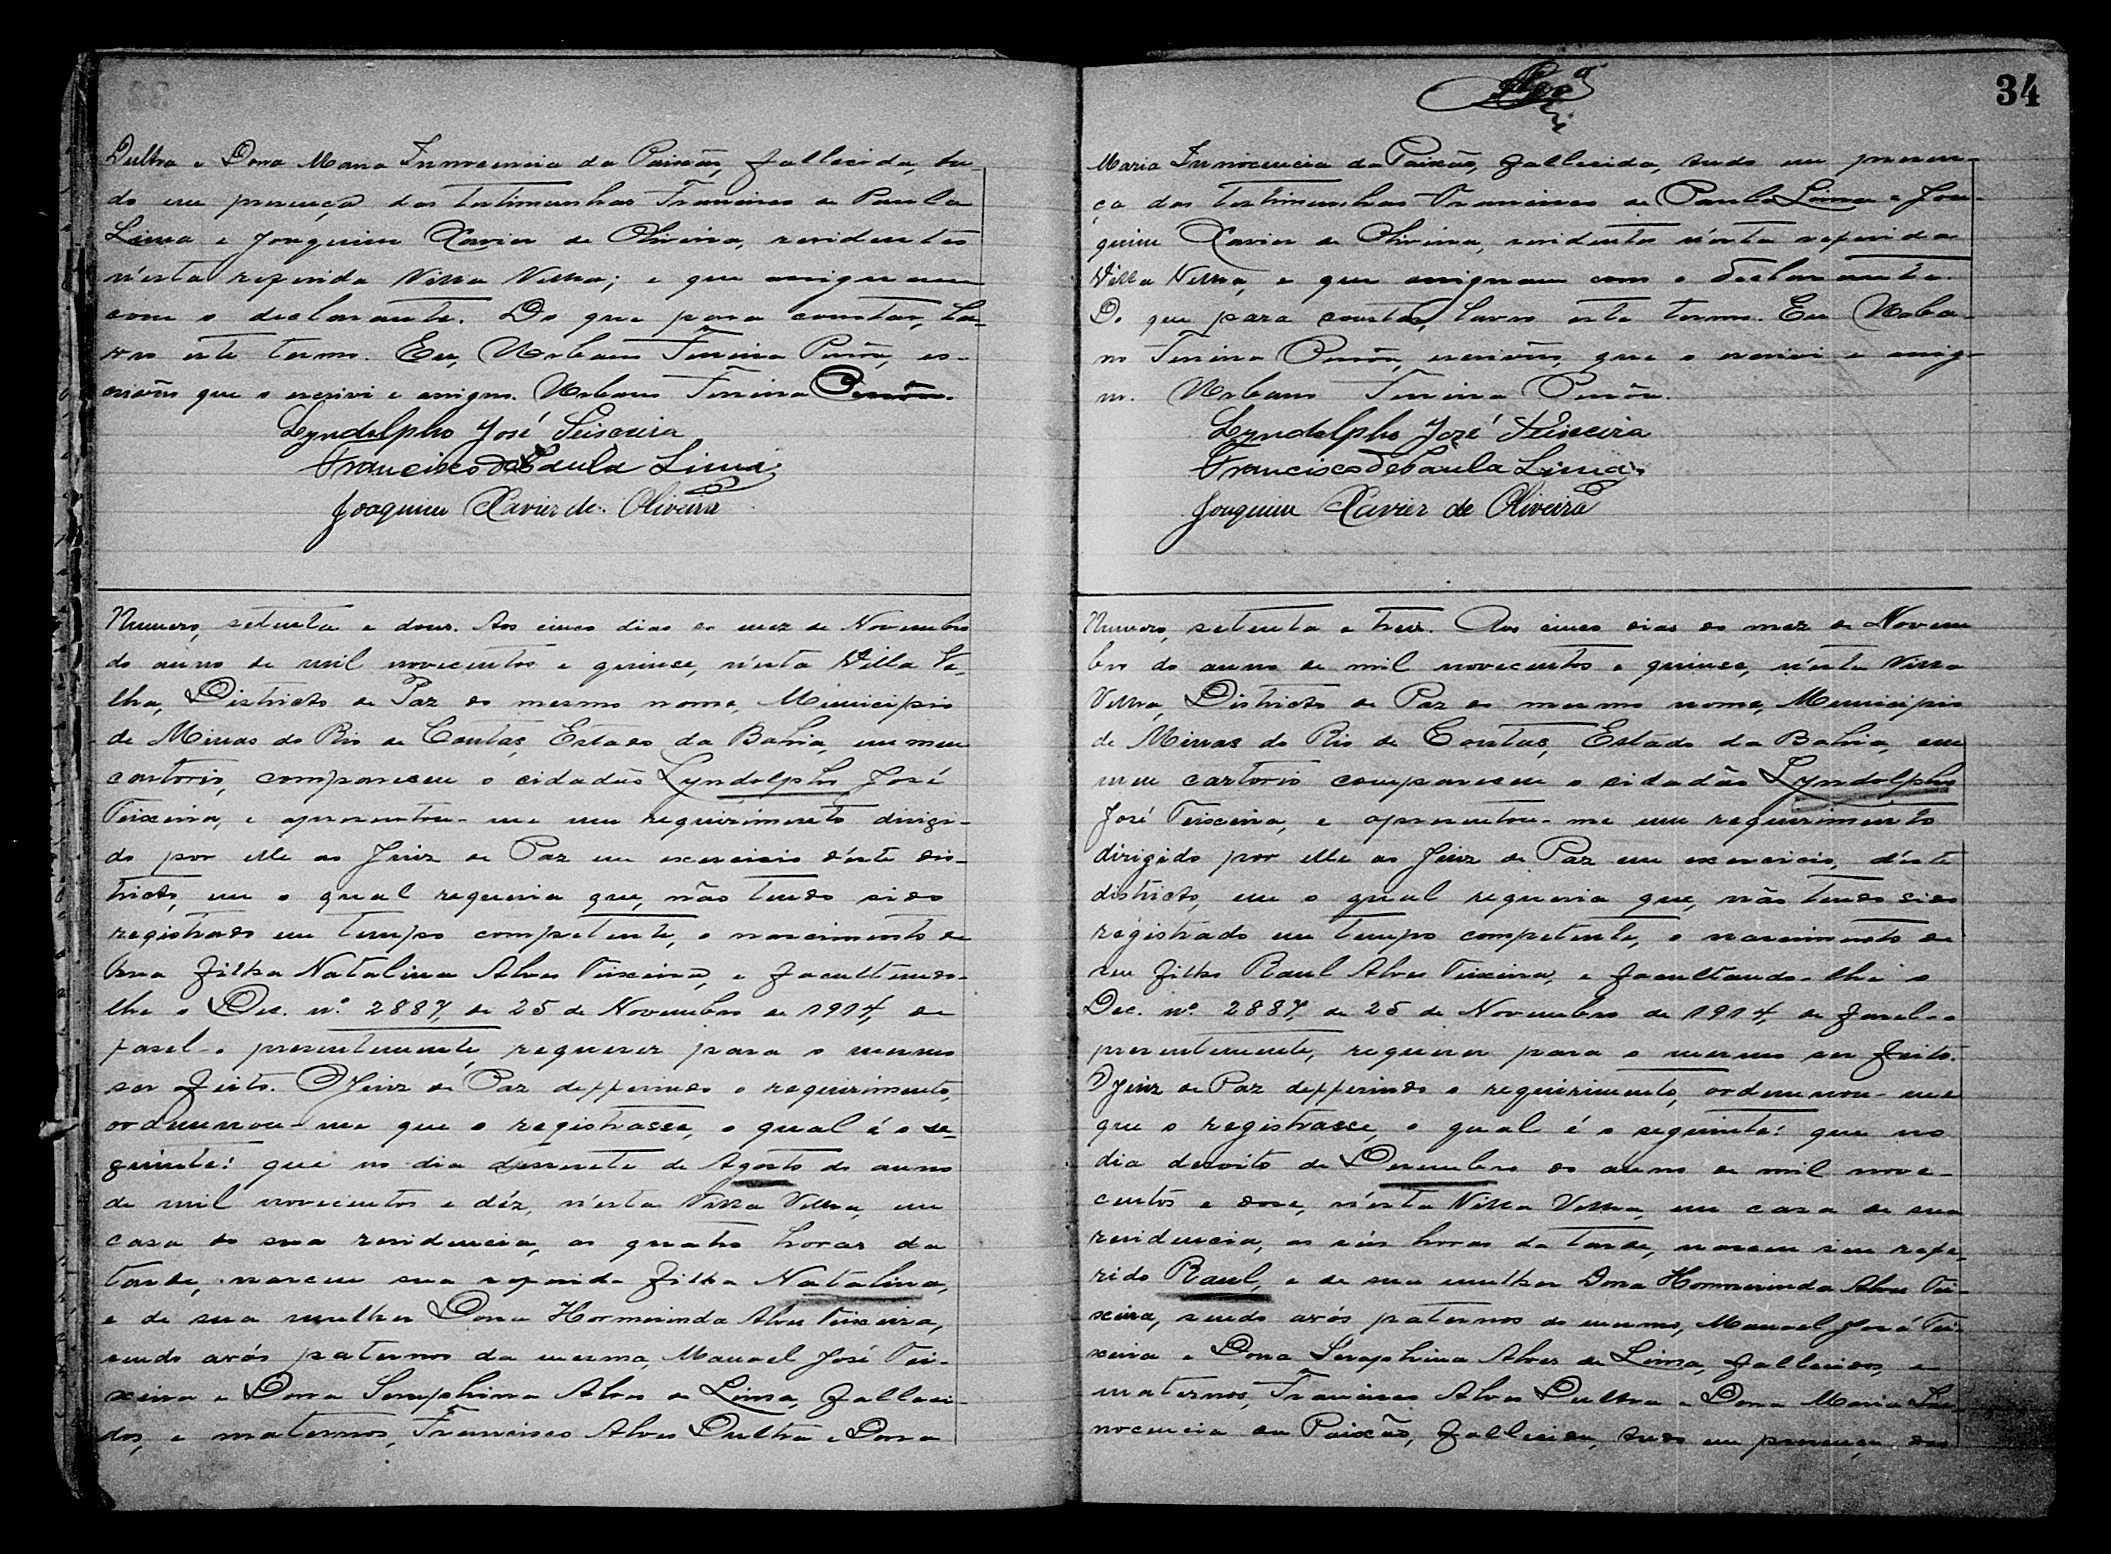 Dultra e Dona Maria Innocencia da Paixão, fallecida, tu-
do em presença das testimunhas Francisco de Paula
Lima e Joaquim Xavier de Oliveira, residentes
n'esta referida Villa Velha; e que assignam
com o declarante. Do que para constar, la-
vro este termo. Eu, Urbano Ferreira Pessôa, es-
crivão que o escrivi e assigno. Urbano Ferreira Pessôa.
Lyndolpho José Teixeira
Francisco de Paula Lima
Joaquim Xavier de Oliveira
Numero, setenta e dous. Aos cinco dias do mez de Novembro
do anno de mil novecentos e quinse, n'esta Villa Ve-
lha, Districto de Paz do mesmo nome, Municipio
de Minas do Rio de Contas, Estado da Bahia, em meu
cartorio, compareceu o cidadão Lyndolpho José
Teixeira, e apresentou-me um requirimento dirigi-
do por elle ao Juiz de Paz em exercicio d'este dis-
tricto, em o qual requeria que, não tendo sido
registrado em tempo competente, o nascimento de
sua filha Natalina Alves Teixeira, e facultando-
lhe o Dec. nº 2887, de 25 de Novembro de 1914, de
fasel-o presentemente, requerer para o mesmo
ser feito. O Juiz de Paz defferindo o requirimento,
ordennou-me que o registrasse, o qual é o se-
guinte: que no dia desesete de Agosto do anno
de mil novecentos e déz, n'esta Villa Velha, em
casa de sua residencia, as quatro horas da
tarde, nasceu sua referida filha Natalina,
e de sua mulher Dona Hormerinda Alves Teixeira,
sendo avós paternos da mesma, Manoel José Tei-
xeira e Dona Seraphina Alves de Lima, falleci-
dos, e maternos, Francisco Alves Dultra e Dona
34
Maria Innocencia da Paixão, fallecida, tudo em presen-
ça das testimunhas Francisco de Paula Lima e Joa-
quim Xavier de Oliveira, residentes n'esta referida
Villa Velha, e que assignam com o declarante.
Do que para constar, lavro este termo. Eu Urba-
no Ferreira Pessôa, escrivão, que o escrivi e assig-
no. Urbano Ferreira Pessôa.
Lyndolpho José Teixeira
Francisco de Paula Lima
Joaquim Xavier de Oliveira
Numero, setenta e tres. Aos cinco dias do mez de Novem
bro do anno de mil novecentos e quinse, n'esta Villa
Velha, Districto de Paz do mesmo nome, Municipio
de Minas do Rio de Contas, Estado da Bahia, em
meu cartorio compareceu o cidadão Lyndolpho
José Teixeira, e apresentou-me um requirimento
dirigido por elle ao Juiz de Paz em exercicio, d'este
districto, em o qual requeria que, não tendo sido
registrado em tempo competente, o nascimento de
seu filho Raul Alves Teixeira, e facultando-lhe o
Dec. nº 2887, de 25 de Novembro de 1914, de fasel-o
presentemente, requerer para o mesmo ser feito.
O Juiz de Paz defferindo o requirimento, ordennou-me
que o registrasse, o qual é o seguinte: que no
dia desoito de Desembro do anno de mil nove-
centos e dose, n'esta Villa Velha, em casa de sua
residencia, as seis horas da tarde, nasceu seu refe-
rido Raul, e de sua mulher Dona Hormerinda Alves Tei-
xeira, sendo avós paternos do mesmo, Manoel José Tei-
xeira e Dona Seraphina Alves de Lima, fallecidos, e
maternos, Francisco Alves Dultra e Dona Maria In-
nocencia da Paixão, fallecida, tudo em presença das